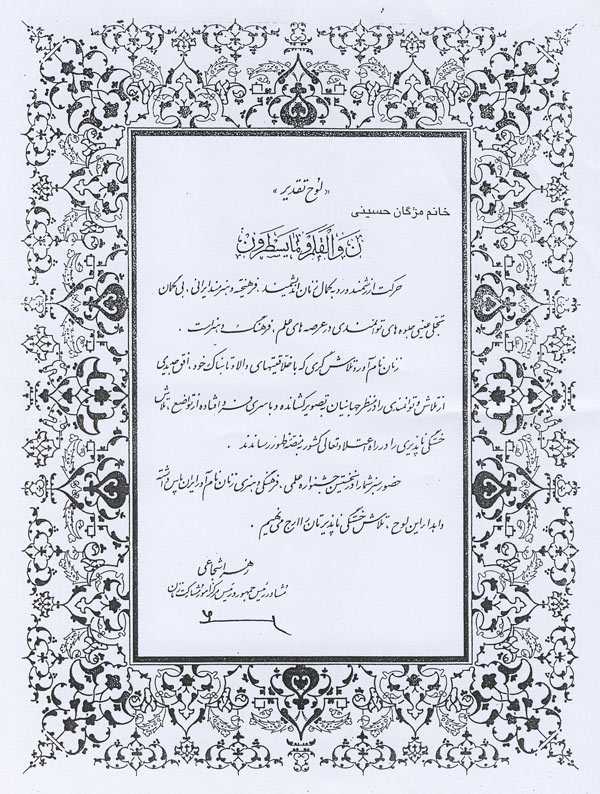 «لوح تقدیر»
خانم مژگان حسینی
ن والقلم و ما یسطرون
حرکت ارزشمند و رو به کمال زنان اندیشمند، فرهیخته و هنرمند ایرانی، بی گمان
تجلی عینی جلوه های توانمندی در عرصه های علم، فرهنگ و هنر است.
زنان نام آور و تلاش گری که با خلاقیتهای والا و تابناک خود، افق جدیدی
از تلاش و توانمندی را در منظر جهانیان به تصویر کشانده و با سری افراشته از تواضع، تلاش
خستگی ناپذیری را در راه اعتلا و تعالی کشور به منصه ظهور رساندند.
حضور سبز شما را در نخستین جشنواره علمی، فرهنگی و هنری زنان نام آور ایران پاس داشته
و با اهدا این لوح، تلاش خستگی ناپذیرتان را ارج می نهیم.
زهرا شجاعی
مشاور رئیس جمهور و رئیس مرکز امور مشارکت زنان